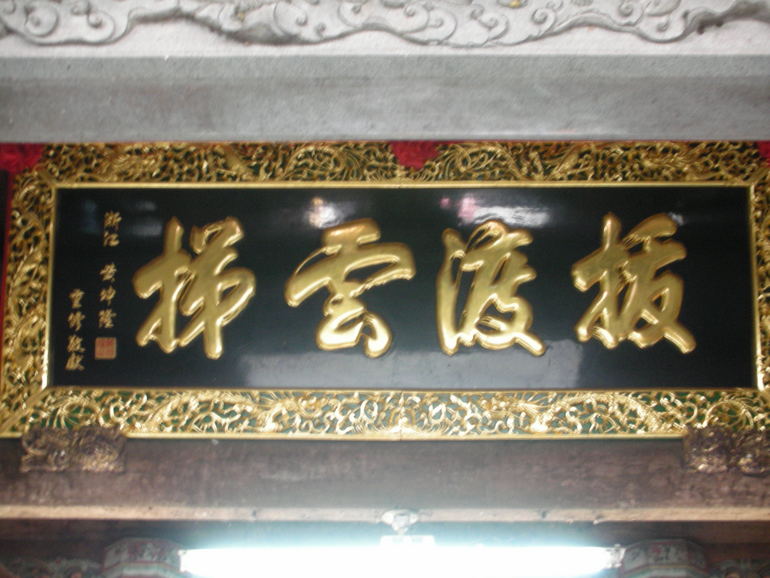 拔渡雲梯
浙江 黃坤隆
重修敬獻